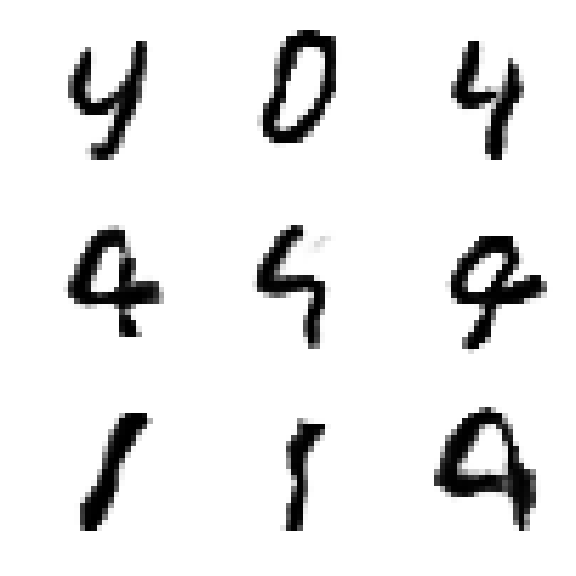 4 0 4
4 4 4
1 1 4